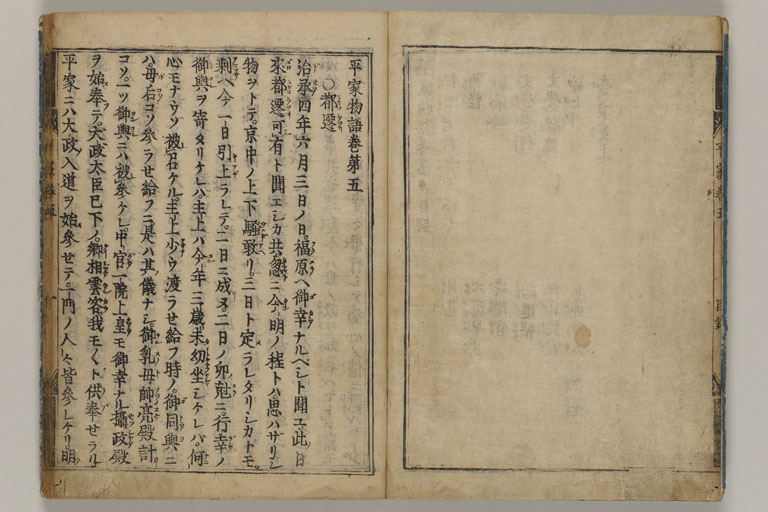 平家物語巻第五
○都遷
治承四年六月三日ノ日。福原ヘ御幸ナルベシト聞ユ。此日
来都遷可有ト聞エシカ共。忽ニ今明ノ程トハ思ハザリシ
物ヲトテ。京中ノ上下騒敢リ。三日ト定ラレタリシカトモ。
剰ヘ今一日引上ラレテ。二日ニ成ヌ。二日ノ卯尅ニ。行幸ノ
御輿ヲ寄タリケレハ。主上ハ今年三歳。未幼坐シケレバ。何
心モナウソ被召ケル。主上少ウ渡ラせ給フ時ノ。御同輿ニ
ハ。母后コソ参ラせ給フニ。是ハ其儀ナシ。御乳母帥亮殿計
コソ。一ツ御輿ニハ被参ケレ。中宮一院上皇モ御幸ナル。摂政殿
ヲ始奉テ。大政大臣已下ノ卿相雲客。我モ〱ト供奉せラル。
平家ニハ大政入道ヲ始参せテ。一門ノ人々皆参レケリ。明
平家巻五